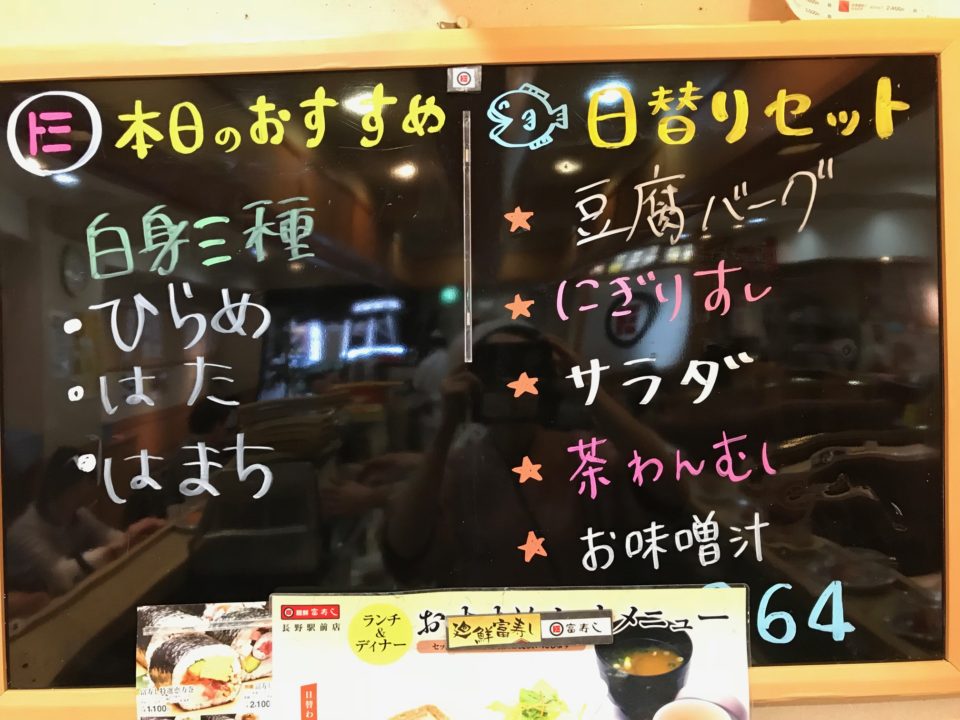 本日のおすすめ
白身三種
・ひらめ
・はた
・はまち
日替りセット
★ 豆腐バーグ
★ にぎりすし
★ サラダ
★ 茶わんむし
★ お味噌汁
64
富寿し
長野駅前店
ランチ
&
ディナー
メニュー
富寿し
1,100
2,100
日替わ